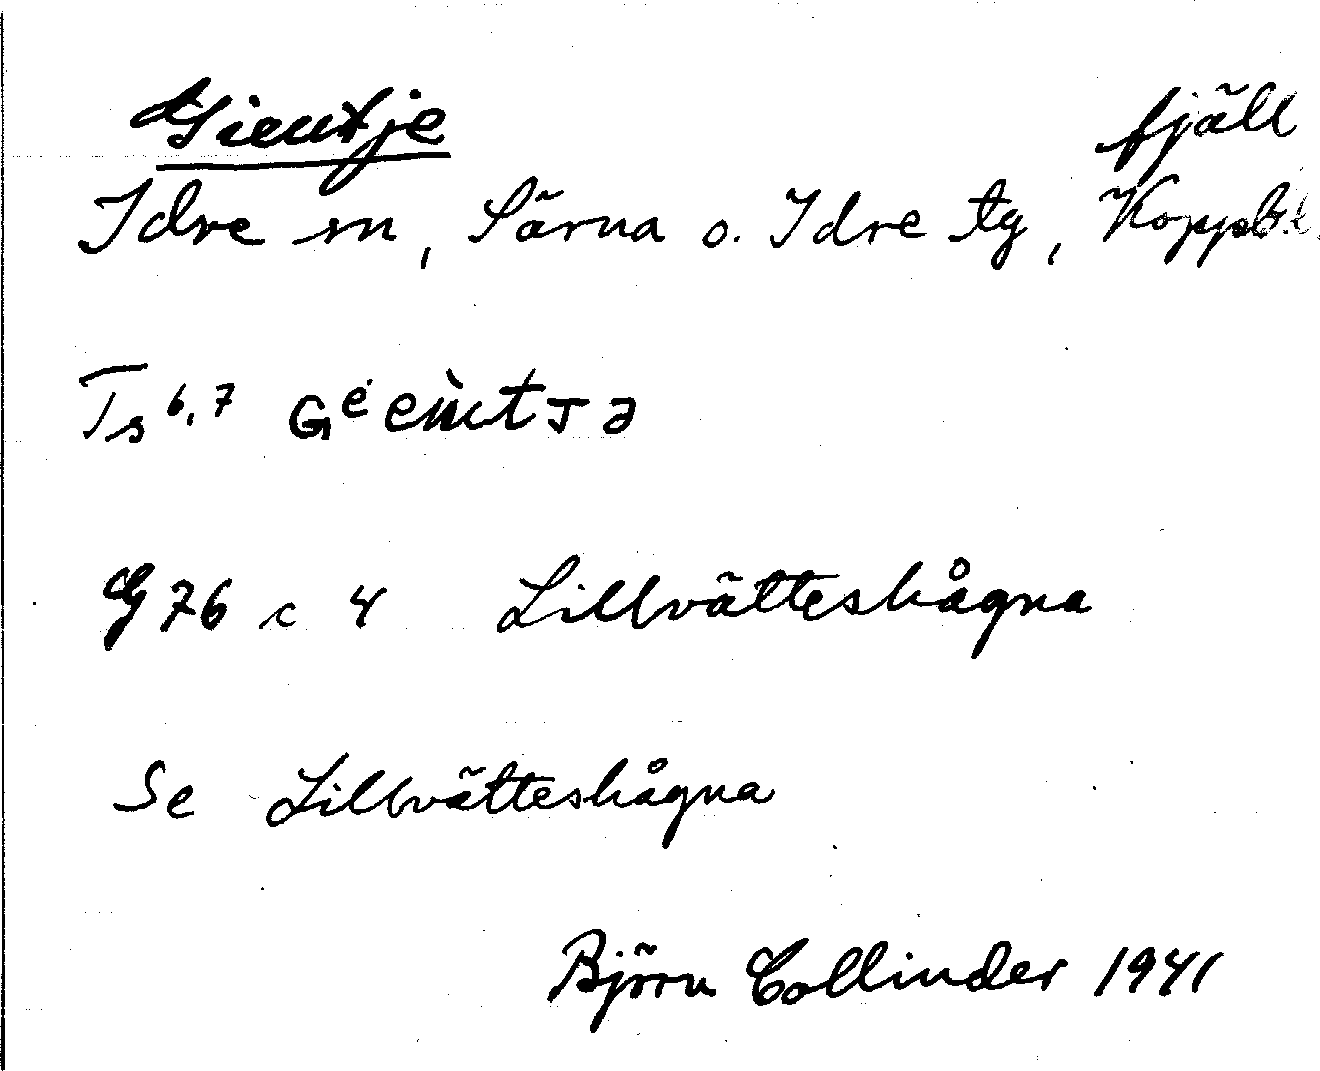 Gientje fjäll
Idre sn, Särna o. Idre tg, Koppb.l.
Ts 6,7
G 76 c 4 Lillvätteshågna
Se Lillvätteshågna
Björn Collinder 1941